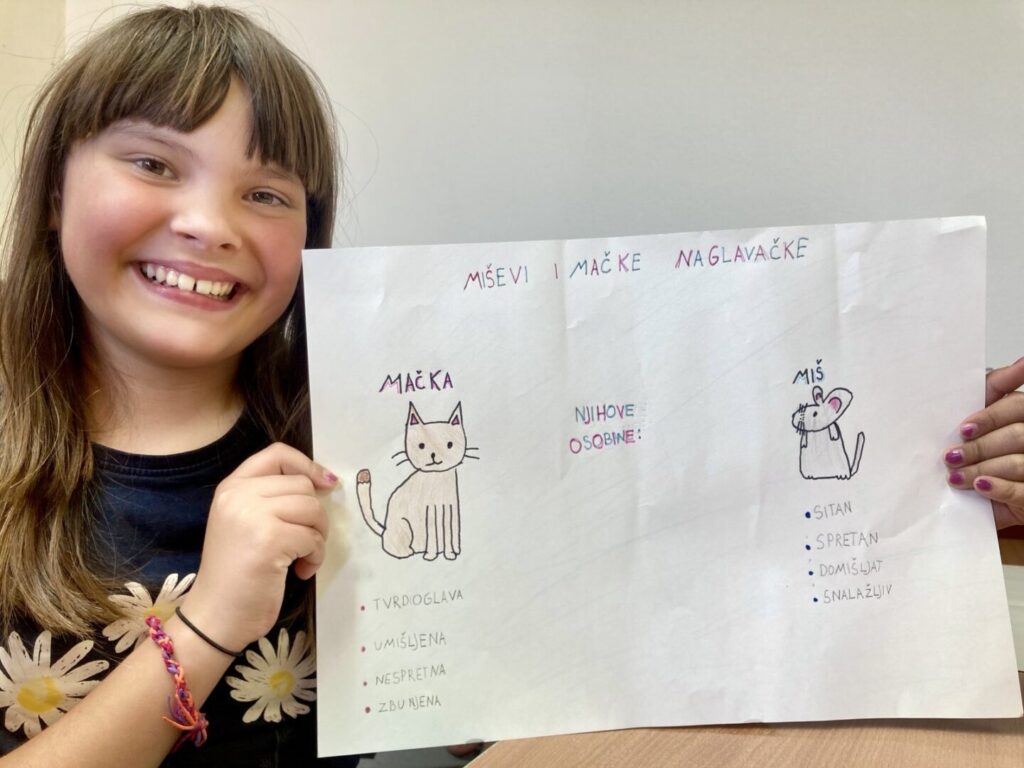 MIŠEVI I MAČKE NAGLAVAČKE
MAČKA
NJIHOVE
OSOBINE:
MIŠ
• TVRDOGLAVA
• UMIŠLJENA
• NESPRETNA
• ZBUNJENA
• SITAN
• SPRETAN
• DOMIŠLJAT
• SNALAŽLJIV